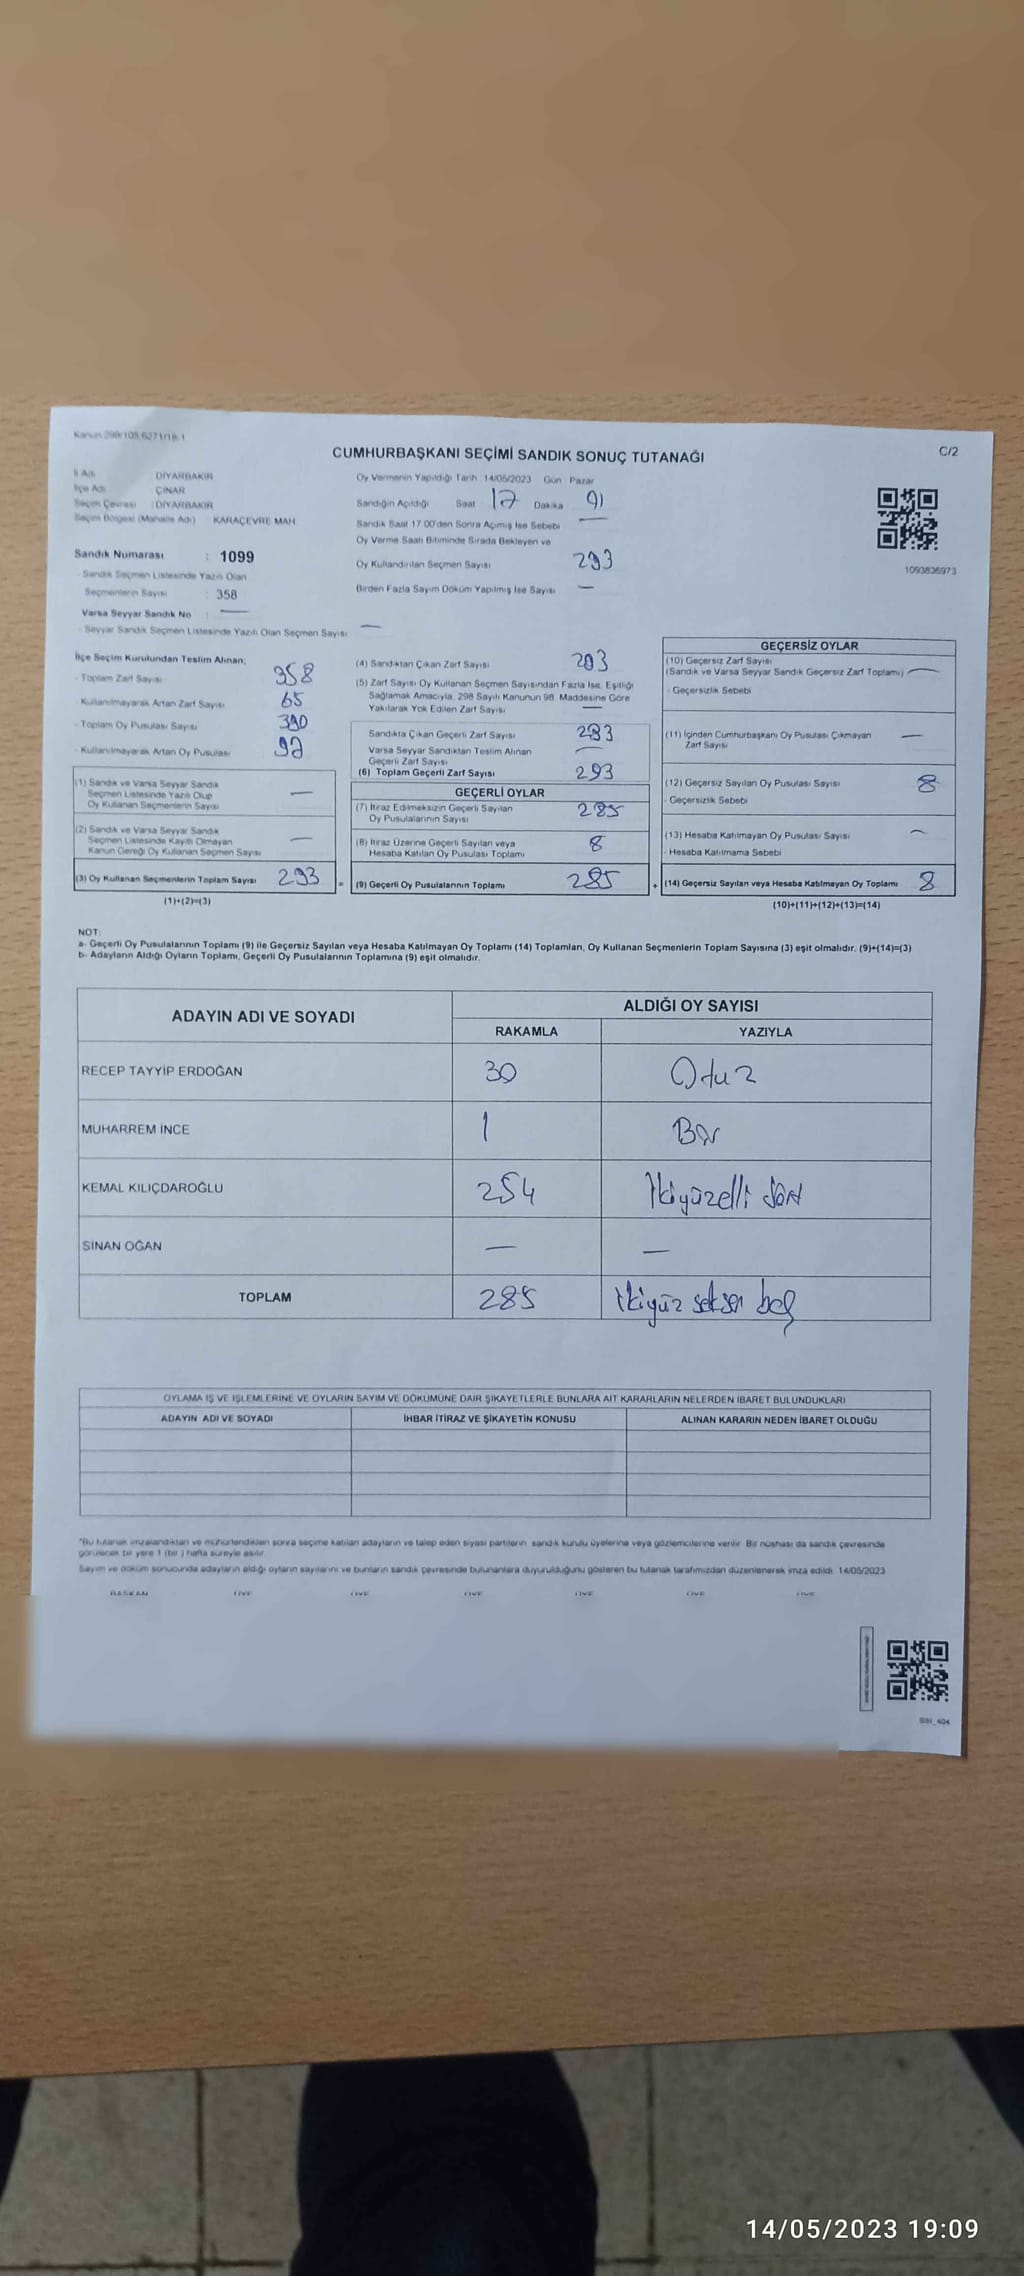 Kanun 298/105,6271/18.1
C/2
CUMHURBAŞKANI SEÇİMİ SANDIK SONUÇ TUTANAĞI
İl Adı DİYARBAKIR
İlçe Adı ÇINAR
Seçim Çevresi : DİYARBAKIR
Seçim Bölgesi (Mahalle Adı) KARAÇEVRE MAH.
Sandık Numarası : 1099
- Sandık Seçmen Listesinde Yazılı Olan
Seçmenlerin Sayısı : 358
Varsa Seyyar Sandık No : —
- Seyyar Sandık Seçmen Listesinde Yazılı Olan Seçmen Sayısı —
Oy Vermenin Yapıldığı Tarih 14/05/2023 Gün Pazar
Sandığın Açıldığı Saat 17 Dakika
Sandık Saat 17.00'den Sonra Açılmış İse Sebebi —
Oy Verme Saati Bitiminde Sırada Bekleyen ve
Oy Kullandırılan Seçmen Sayısı 293
Birden Fazla Sayım Döküm Yapılmış İse Sayısı —
1093836973
İlçe Seçim Kurulundan Teslim Alınan:
- Toplam Zarf Sayısı 358
- Kullanılmayarak Artan Zarf Sayısı 65
- Toplam Oy Pusulası Sayısı 390
- Kullanılmayarak Artan Oy Pusulası 97
(1) Sandık ve Varsa Seyyar Sandık
Seçmen Listesinde Yazılı Olup
Oy Kullanan Seçmenlerin Sayısı —
(2) Sandık ve Varsa Seyyar Sandık
Seçmen Listesinde Kayıtlı Olmayan
Kanun Gereği Oy Kullanan Seçmen Sayısı —
(3) Oy Kullanan Seçmenlerin Toplam Sayısı 293
=
(1)+(2)=(3)
(4) Sandıktan Çıkan Zarf Sayısı 293
(5) Zarf Sayısı Oy Kullanan Seçmen Sayısından Fazla İse, Eşitliği
Sağlamak Amacıyla, 298 Sayılı Kanunun 98. Maddesine Göre
Yakılarak Yok Edilen Zarf Sayısı —
Sandıkta Çıkan Geçerli Zarf Sayısı 293
Varsa Seyyar Sandıktan Teslim Alınan
Geçerli Zarf Sayısı —
(6) Toplam Geçerli Zarf Sayısı 293
GEÇERLİ OYLAR
(7) İtiraz Edilmeksizin Geçerli Sayılan
Oy Pusulalarının Sayısı 285
(8) İtiraz Üzerine Geçerli Sayılan veya
Hesaba Katılan Oy Pusulası Toplamı 8
(9) Geçerli Oy Pusulalarının Toplamı 285
+
GEÇERSİZ OYLAR
(10) Geçersiz Zarf Sayısı
(Sandık ve Varsa Seyyar Sandık Geçersiz Zarf Toplamı) —
- Geçersizlik Sebebi
(11) İçinden Cumhurbaşkanı Oy Pusulası Çıkmayan
Zarf Sayısı —
(12) Geçersiz Sayılan Oy Pusulası Sayısı 8
- Geçersizlik Sebebi
(13) Hesaba Katılmayan Oy Pusulası Sayısı —
- Hesaba Katılmama Sebebi
(14) Geçersiz Sayılan veya Hesaba Katılmayan Oy Toplamı 8
(10)+(11)+(12)+(13)=(14)
NOT:
a- Geçerli Oy Pusulalarının Toplamı (9) ile Geçersiz Sayılan veya Hesaba Katılmayan Oy Toplamı (14) Toplamları, Oy Kullanan Seçmenlerin Toplam Sayısına (3) eşit olmalıdır. (9)+(14)=(3)
b- Adayların Aldığı Oyların Toplamı, Geçerli Oy Pusulalarının Toplamına (9) eşit olmalıdır.
ADAYIN ADI VE SOYADI ALDIĞI OY SAYISI
RAKAMLA YAZIYLA
RECEP TAYYİP ERDOĞAN 30 Otuz
MUHARREM İNCE 1 Bir
KEMAL KILIÇDAROĞLU 254 İkiyüzelli dört
SİNAN OĞAN — —
TOPLAM 285 İkiyüz seksen beş
OYLAMA İŞ VE İŞLEMLERİNE VE OYLARIN SAYIM VE DÖKÜMÜNE DAİR ŞİKAYETLERLE BUNLARA AİT KARARLARIN NELERDEN İBARET BULUNDUKLARI
ADAYIN ADI VE SOYADI İHBAR İTİRAZ VE ŞİKAYETİN KONUSU ALINAN KARARIN NEDEN İBARET OLDUĞU
*Bu tutanak imzalandıktan ve mühürlendikten sonra seçime katılan adayların ve talep eden siyasi partilerin sandık kurulu üyelerine veya gözlemcilerine verilir. Bir nüshası da sandık çevresinde
görülecek bir yere 1 (bir) hafta süreyle asılır.
Sayım ve döküm sonucunda adayların aldığı oyların sayılarını ve bunların sandık çevresinde bulunanlara duyurulduğunu gösteren bu tutanak tarafımızdan düzenlenerek imza edildi. 14/05/2023
BAŞKAN ÜYE ÜYE ÜYE ÜYE ÜYE ÜYE
14/05/2023 19:09